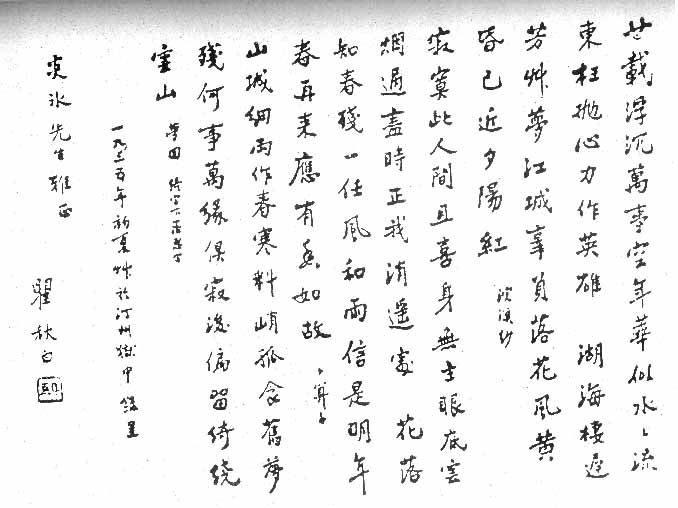 廿載浮沉萬事空年華似水水流
東枉拋心力作英雄 湖海棲遲
芳艸夢江城辜負落花風黄
昏已近夕陽紅 浣溪紗
寂寞此人間且喜身無主眼底雲
烟過盡時正我逍遥處 花落
知春殘一任風和雨信是明年
春再來應有香如故 卜算子
山城細雨作春寒料峭孤衾舊夢
殘何事萬緣俱寂後偏留綺繞
雲山 夢回
一九三五年初夏 於汀州獄中錄呈
炎冰先生雅正
瞿秋白